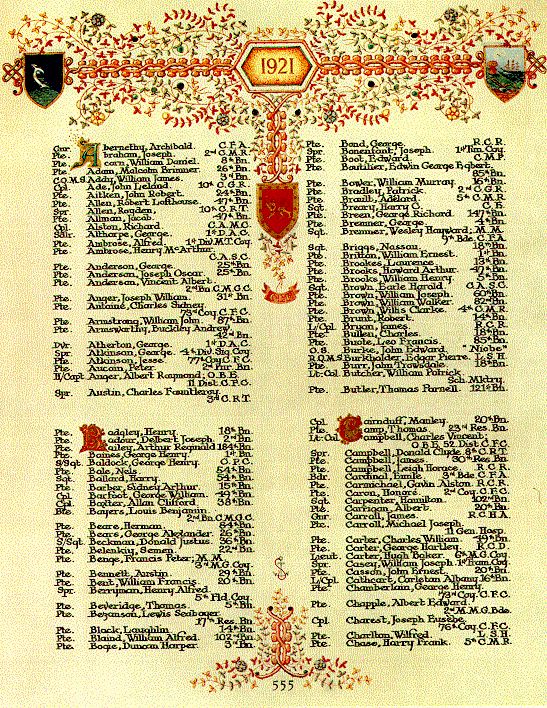 1921
Gnr. Abernethy, Archibald. C.F.A.
Pte. Abraham, Joseph. 2nd C.M.R.
Pte. Acorn, William Daniel. 8th Bn.
Pte. Adam, Malcolm Brimner. 26th Bn.
C.Q.M.S. Addy, William James. 3rd Bn.
Cpl. Ade, John Leland. 10th C.G.R.
Pte. Aitken, John Robert. 24th Bn.
Pte. Allen, Robert Lofthouse. 47th Bn.
Spr. Allen, Royden. 10th C.R.T.
Pte. Allman, Jacob. 47th Bn.
Cpl. Alston, Richard. C.A.M.C.
Althorpe, George. 1st D.A.C.
Pte. Ambrose, Alfred. 1st Div. M.T. Coy.
Pte. Ambrose, Henry McArthur.
C.A.S.C.
Pte. Anderson, George. 25th Bn.
Pte. Anderson, Joseph Oscar. 25th Bn.
Pte. Anderson, Vincent Albert.
2nd Bn. C.M.G.C.
Pte. Anger, Joseph William. 31st Bn.
Pte. Antoine, Charles Sidney.
73rd Coy. C.F.C.
Pte. Armstrong, William John. 87th Bn.
Pte. Armsworthy, Buckley Andrew.
42nd Bn.
Dvr. Atherton, George. 1st D.A.C.
Spr. Atkinson, George. 4th Div. Sig. Coy.
Pte. Atkinson, Jesse. 77th Coy. C.F.C.
Pte. Aucoin, Peter. 2nd Pnr. Bn.
H/Capt. Auger, Albert Raymond; O.B.E.
11 Dist. C.F.C.
Spr. Austin, Charles Fauntleroy.
3rd C.R.T.
Pte. Badgley, Henry. 18th Bn.
Pte. Badour, Delbert Joseph. 2nd Bn.
Pte. Bailey, Arthur Reginald. 184th Bn.
Pte. Baines, George Henry. 1st Bn.
S/Sgt. Baldock, George Henry. C.F.C.
Pte. Bale, Nels. 54th Bn.
Sgt. Ballard, Harry. 54th Bn.
Pte. Barber, Sidney Arthur. 15th Bn.
Cpl. Barfoot, George William. 49th Bn.
Cpl. Baxter, Allan Clifford. 38th Bn.
Pte. Bayers, Louis Benjamin.
2nd Bn. C.M.G.C.
Pte. Beare, Herman. 84th Bn.
Pte. Beare, George Alexander. 26th Bn.
S/Sgt. Beckman, Donald Justus. 36th Bn.
Pte. Belenkiy, Semen. 22nd Bn.
Pte. Benge, Francis Peter; M.M.
3rd M.G. Coy.
Pte. Bennett, Austin. 29th Bn.
Pte. Bent, William Francis. 20th Bn.
Spr. Berryman, Henry Alfred.
5th Fld. Coy.
Pte. Beveridge, Thomas. 5th Bn.
Pte. Beyanson, Lewis Seaboyer.
17th Res. Bn.
Pte. Black, Laughlin. 14th Bn.
Pte. Blaind, William Alfred. 102nd Bn.
Pte. Bogie, Duncan Harper. 3rd Bn.
Pte. Bond, George. R.C.R.
Spr. Bonenfant, Joseph. 1st Tun. Coy.
Pte. Boot, Edward. C.M.P.
Pte. Boutilier, Edwin George Egbert.
85th Bn.
Pte. Bower, William Murray. 16th Bn.
Pte. Bradley, Patrick. 2nd C.G.R.
Pte. Brault, Adélard. 5th C.M.R.
Sgt. Breary, Harry. C.E.
Pte. Breen, George Richard. 147th Bn.
Pte. Bremner, George. 4th Bn.
Sgt. Bremner, Wesley Hayward; M.M.
9th Bde. C.F.A.
Sgt. Briggs, Nassau. 18th Bn.
Pte. Britton, William Ernest. 1st Bn.
Pte. Brookes, Laurence. 13th Bn.
Pte. Brooks, Howard Arthur. 47th Bn.
Pte. Brooks, William Henry. 5th Bn.
Sgt. Brown, Earle Harold. C.A.S.C.
Pte. Brown, William Joseph. 60th Bn.
Pte. Brown, William Walker. 52nd Bn.
Pte. Brown, Wills Clarke. 4th C.M.R.
Pte. Brunt, Robert. 14th Bn.
L/Cpl. Bryan, James. R.C.R.
Pte. Bullen, Charles. 18th Bn.
Pte. Buote, Leo Francis. 85th Bn.
O.S. Burke, John Edward. "Niobe"
R.Q.M.S. Burkholder, Edgar Pierre. L.S.H.
Pte. Burr, John Trowsdale. 18th Bn.
Lt-Col. Butcher, William Patrick.
Sch. Mktry.
Pte. Butler, Thomas Parnell. 121st Bn.
Cpl. Cairnduff, Manley. 20th Bn.
Pte. Camp, Thomas. 23rd Res. Bn.
Lt-Col. Campbell, Charles Vincent;
O.B.E. 52 Dist. C.F.C.
Spr. Campbell, Donald Clyde. 8th C.R.T.
Pte. Campbell, James. 30th Res. Bn.
Pte. Campbell, Leigh Horace. R.C.R.
Bdr. Cardinal, Emile. 3rd Bde. C.F.A.
Pte. Carmichael, Gavin Alston. R.C.R.
Pte. Caron, Honoré. 2nd Coy. C.F.C.
Pte. Carpenter, Hamilton. 102nd Bn.
Pte. Carrigan, Albert. 20th Bn.
Gnr. Carroll, James. R.C.H.A.
Pte. Carroll, Michael Joseph.
1 Gen. Hosp.
Pte. Carter, Charles William. 49th Bn.
Pte. Carter, George Hartley. R.C.D.
Lieut. Carter, Hugh Baker. 6th M.G. Coy.
Spr. Casey, William Joseph. 1st Tram. Coy.
Pte. Casson, John Ernest. 20th Bn.
L/Cpl. Cathcart, Carleton Albany. 16th Bn.
Pte. Chamberlain, George Henry.
73rd Coy. C.F.C.
Pte. Chapple, Albert Edward.
2nd M.M.G. Bde.
Cpl. Charest, Joseph Eusèbe.
76th Coy. C.F.C.
Pte. Charlton, Wilfred. L.S.H.
Pte. Chase, Harry Frank. 5th C.M.R.
555